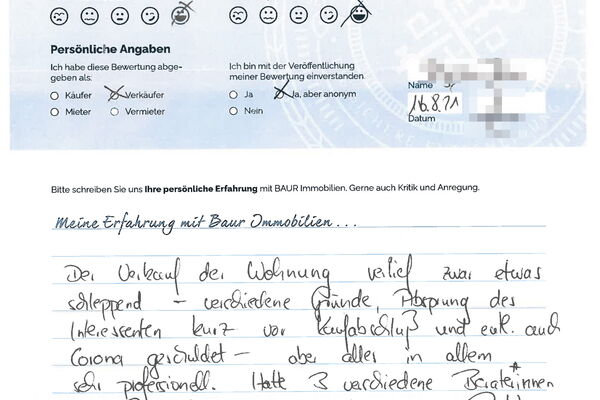 Persönliche Angaben
Ich habe diese Bewertung abge-
geben als:
Käufer
Verkäufer
Mieter
Vermieter
Ich bin mit der Veröffentlichung
meiner Bewertung einverstanden.
Ja
Ja, aber anonym
Nein
Name
16.8.21
Datum
Bitte schreiben Sie uns Ihre persönliche Erfahrung mit BAUR Immobilien. Gerne auch Kritik und Anregung.
Meine Erfahrung mit Baur Immobilien...
Der Verkauf der Wohnung verlief zwar etwas
schleppend – verschiedene Gründe, Absprung des
Interessenten kurz vor Kaufabschluß und evtl. auch
Corona geschuldet – aber alles in allem
sehr professionell. Hatte 3 verschiedene Berater*innen